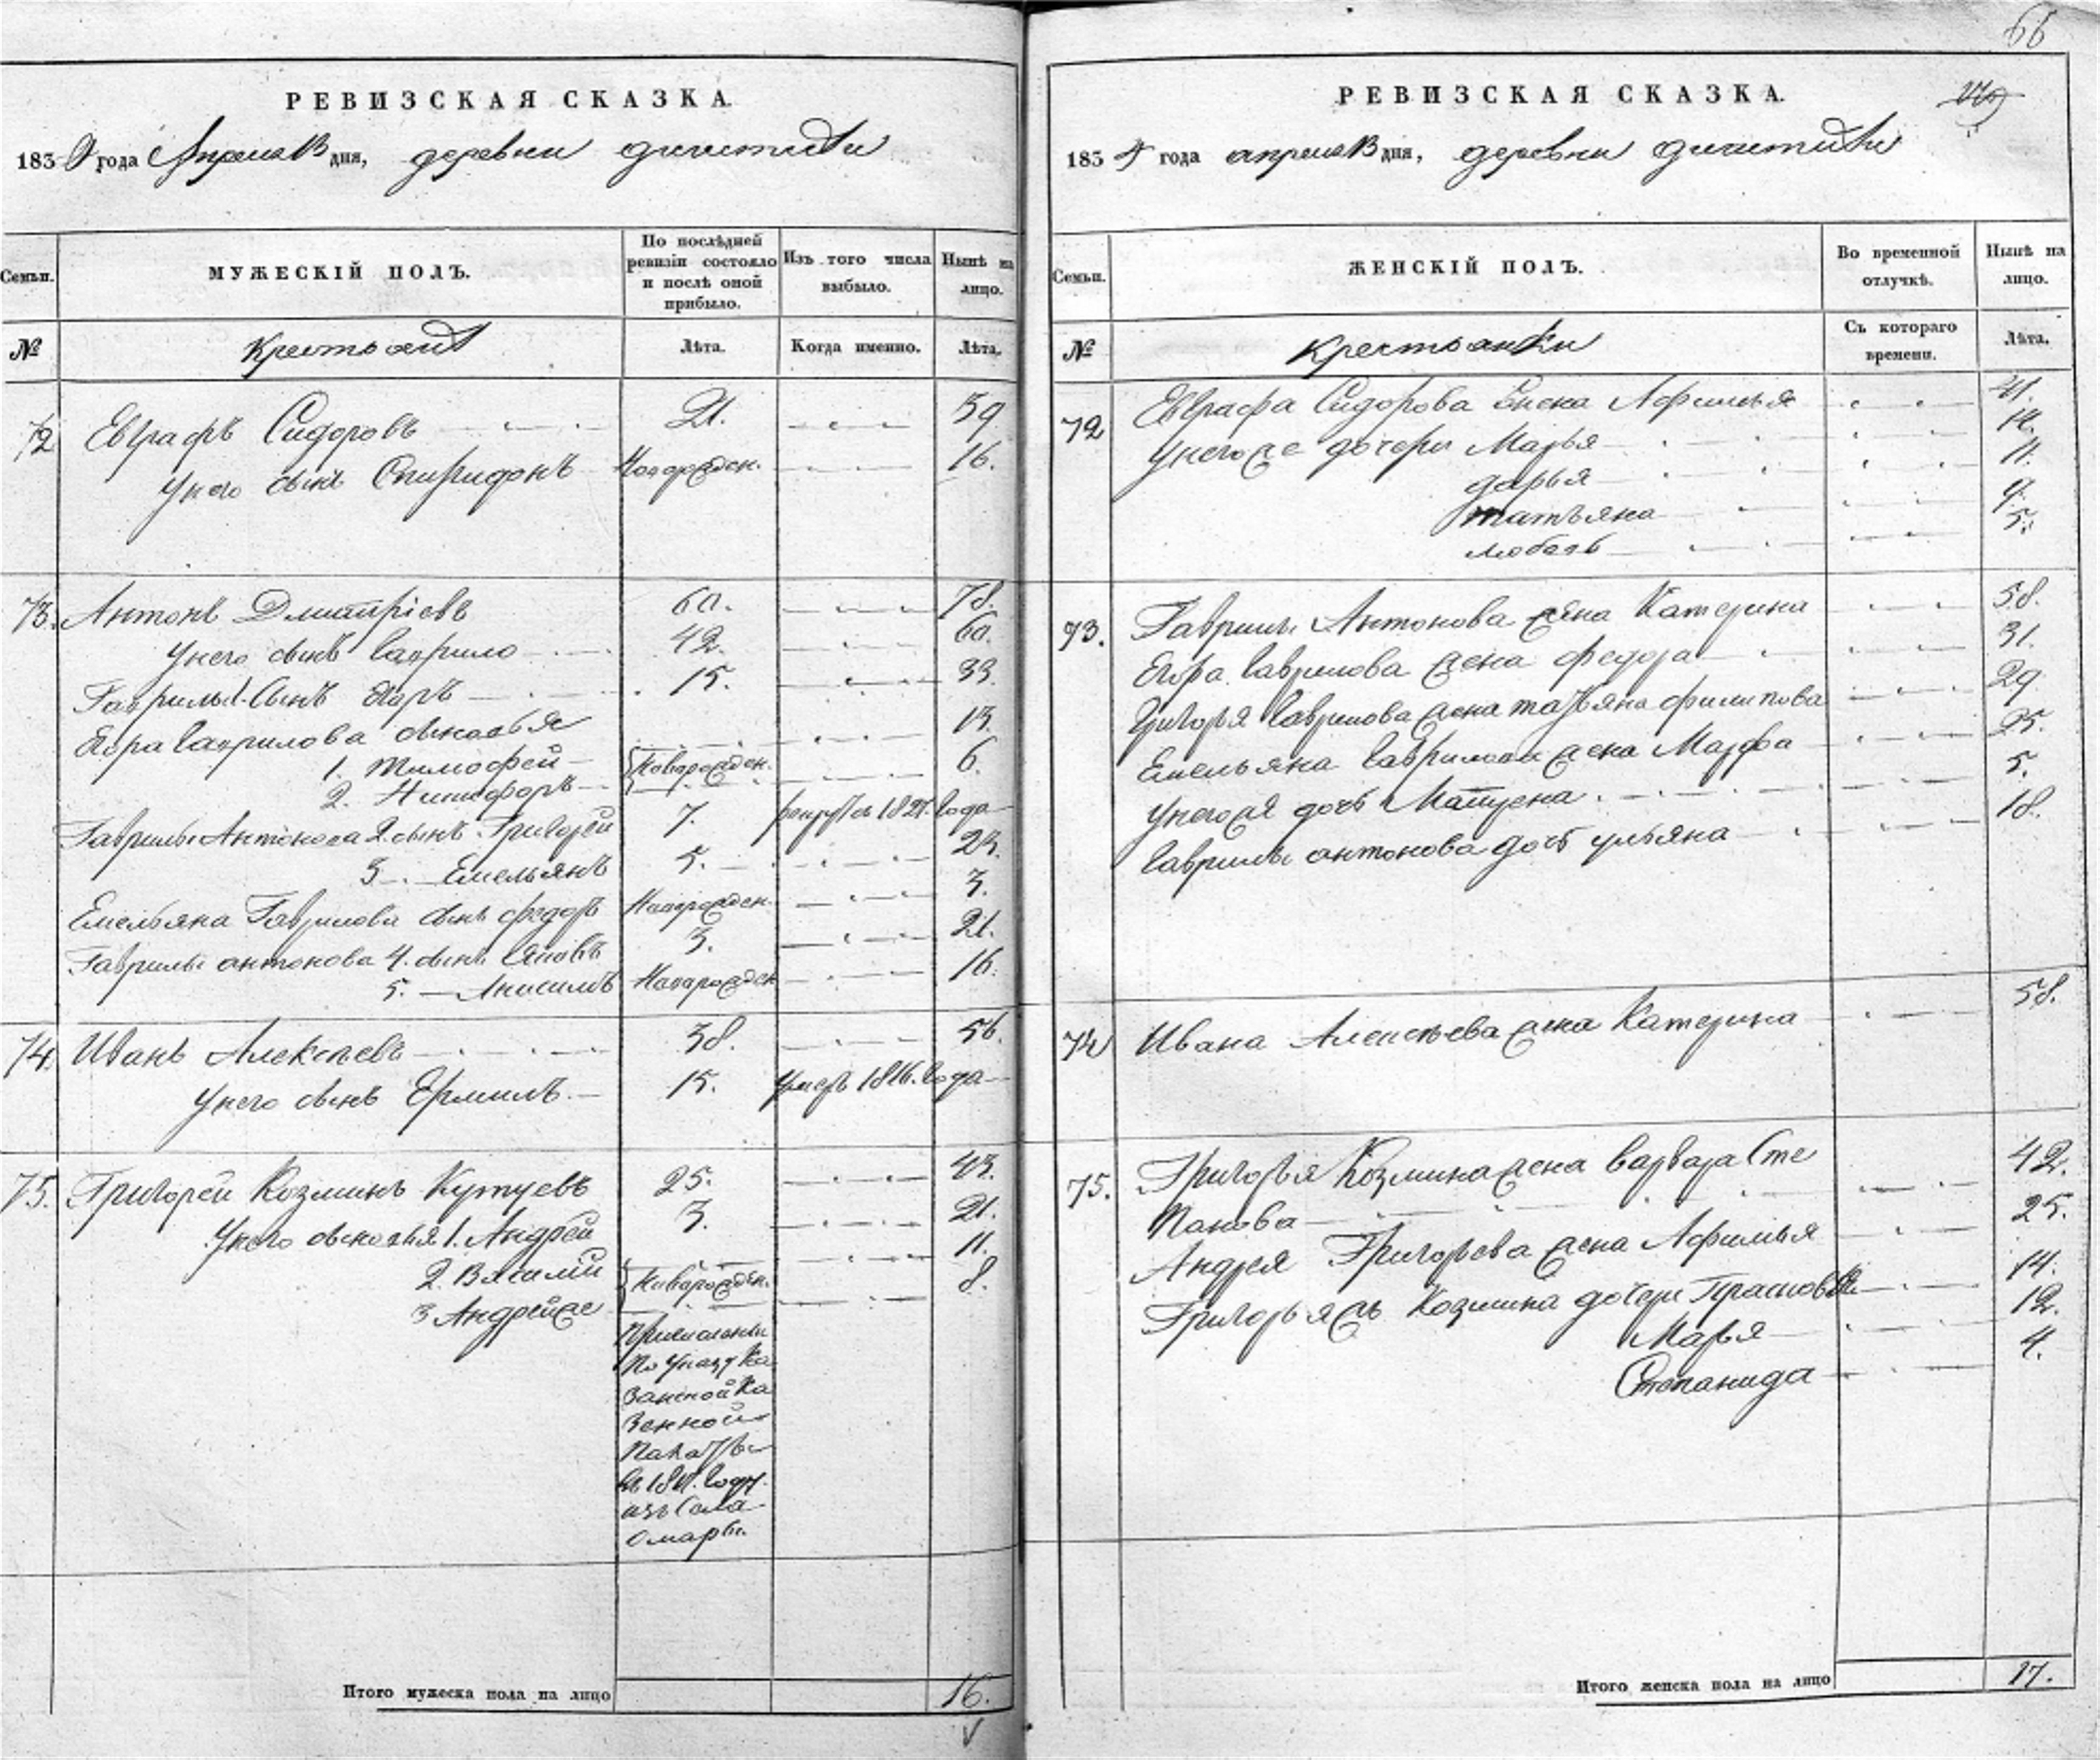 66
РЕВИЗСКАЯ СКАЗКА.
183 года Апреля 13 дня, деревни
Семьи.
МУЖЕСКІЙ ПОЛЪ.
По послѣдней ревизіи состояло и послѣ оной прибыло.
Изъ того числа выбыло.
Нынѣ на лицо.
№
Крестьянъ
Лѣта.
Когда именно.
Лѣта.
72 Евграфъ Сидоровъ 21. 39
У него сынъ Спиридонъ Новорожден. 16.
73. Антонъ Дмитріевъ 60. 78.
У него сынъ Гаврило 42. 60.
Гаврилы 1. Сынъ Егоръ 15. 33.
Егора Гаврилова сыновья
1. Тимофей 13.
Новорожден.
2. Никифоръ 6.
Гаврилы Антонова 2. сынъ Григорей 7. рекрутъ 1827. года
3. Емельянъ 5. 23.
Емельяна Гаврилова сынъ Федоръ Новорожден. 3.
Гаврилы антонова 4. сынъ Яковъ 3. 21.
5. Анисимъ Новорожден. 16.
74. Иванъ Алексѣевъ 38. 56.
У него сынъ Ермилъ 15. умеръ 1816. года
75. Григорей Козминъ Кутуевъ 25. 43.
У него сыновья 1. Андрей 3. 21.
2. Василий 11.
Новорожден.
3 Андрей же 8.
Причислены
По указу Ка
занской Ка
зенной
Палаты
году
изъ Села
Омары.
Итого мужеска пола на лицо 16.
РЕВИЗСКАЯ СКАЗКА.
1834 года апреля 13 дня, деревни
Семьи.
ЖЕНСКІЙ ПОЛЪ.
Во временной отлучкѣ.
Нынѣ на лицо.
№
Крестьянки
Съ котораго времени.
Лѣта.
72 Евграфа Сидорова жена Афимья 41.
У него же дочери Марья 14.
дарья 11.
татьяна 9.
любовь 5.
73. Гаврилы Антонова жена Катерина 58.
Егора Гаврилова жена федора 31.
Григорья Гаврилова жена татьяна филипова 29
Емельяна Гаврилова жена Марфа 25.
У него же дочь Матрена 5.
Гаврилы антонова дочь ульяна 18.
74 Ивана Алексѣева жена Катерина 58.
75. Григорья Козмина жена варвара Сте
панова 42.
Андрея Григорьева жена Афимья 25.
Григорья жъ Козмина дочери Прасковья 14.
Марья 12.
Степанида 4.
Итого женска пола на лицо 17.